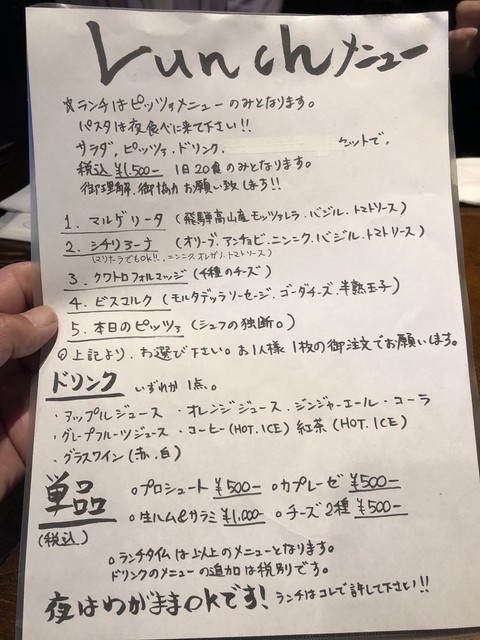 Lunchメニュー
☆ランチはピッツァメニューのみとなります。
パスタは夜食べに来て下さい!!
サラダ,ピッツァ,ドリンク, ケットで、
税込 ¥1,500- 1日20食のみとなります。
御理解,御協力お願い致します!!
1. マルゲリータ (飛騨高山産モッツァレラ.バジル.トマトソース)
2. シチリアーナ (オリーブ.アンチョビ.ニンニク.バジル.トマトソース)
(マリナーラでもOK!!,ニンニク.オレガノ.トマトソース)
3. クワトロフォルマッジ (4種のチーズ)
4. ビスマルク (モルタデッラソーセージ.ゴーダチーズ.半熟玉子)
5. 本日のピッツァ (シェフの独断。)
◎上記より、お選び下さい。お1人様1枚の御注文でお願いします。
ドリンク いずれか1点。
・アップルジュース ・オレンジジュース .ジンジャーエール ・コーラ
・グレープフルーツジュース ・コーヒー(HOT.ICE) 紅茶(HOT.ICE)
・グラスワイン(赤.白)
単品 ○プロシュート ¥500- ○カプレーゼ ¥500-
(税込) ○生ハム&サラミ ¥1,000- ○チーズ2種 ¥500-
○ランチタイムは以上のメニューとなります。
ドリンクのメニューの追加は税別です。
夜はわがままOKです! ランチはコレで許して下さい!!